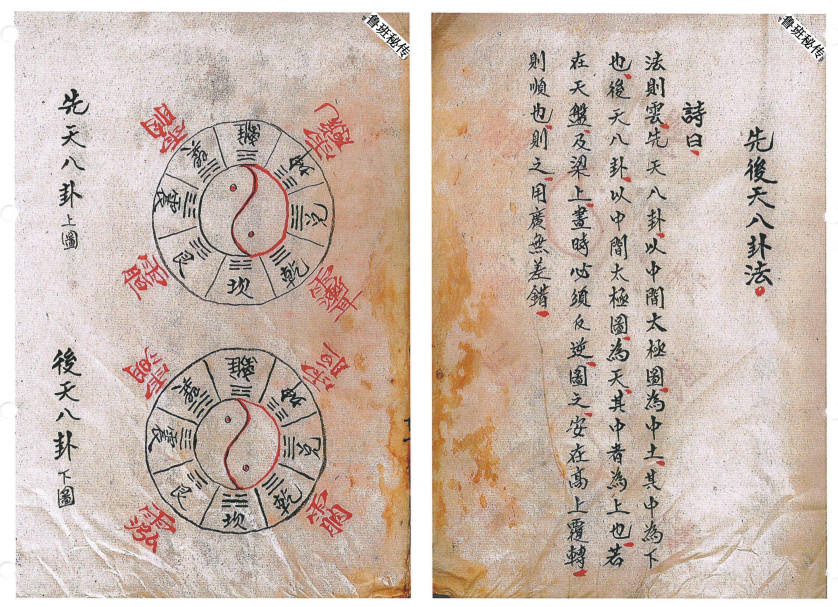 鲁班秘传
先後天八卦法
詩曰
法則雲先天八卦以中間太極圖為中土其中為下
也後天八卦以中間太極圖為天其中者為上也若
在天盤及梁上畫時必須反逆圖之安在高上覆轉
則順也則之用廣無差錯
鲁班秘传
先天八卦上圖
離
坤
兌
乾
坎
艮
震
巽
後天八卦下圖
離
坤
兌
乾
坎
艮
震
巽